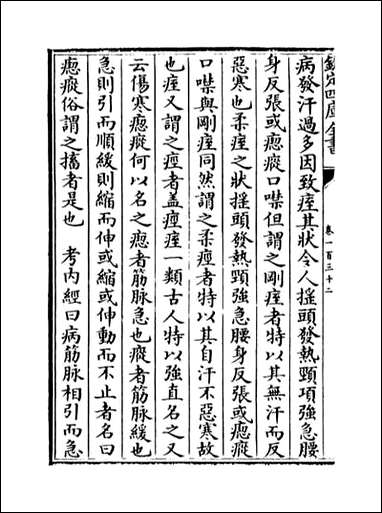 欽定四庫全書
卷一百三十二
病發汗過多因致痓其狀令人搖頭發熱頸項強急腰
身反張或瘛瘲口噤但謂之剛痓者特以其無汗而反
惡寒也柔痓之狀搖頭發熱頸強急腰身反張或瘛瘲
口噤與剛痓同然謂之柔痓者特以其自汗不惡寒故
也痓又謂之痙者蓋痙痓一類古人特以強直名之又
云傷寒瘛瘲何以名之瘛者筋脉急也瘲者筋脉緩也
急則引而順緩則縮而伸或縮或伸動而不止者名曰
瘛瘲俗謂之搐者是也　考內經曰病筋脉相引而急